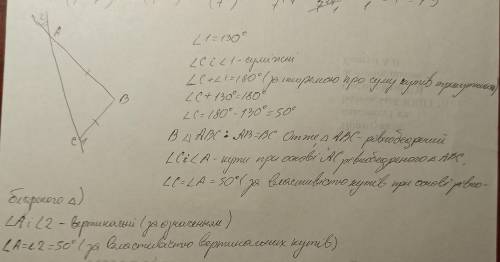 A
B
C
1
2
∠1=130°
∠C і ∠1 - суміжні
∠C+∠1=180° (за теоремою про суму кутів трикутника)
∠C+130°=180°
∠C=180°-130°=50°
В △ABC: AB=BC Отже △ABC-рівнобедрений
∠C і ∠A - кути при основі AC рівнобедреного △ABC.
∠C=∠A=50° (за властивістю кутів при основі рівно-
бедреного △)
∠A і ∠2 - вертикальні (за означенням)
∠A=∠2=50° (за властивістю вертикальних кутів)